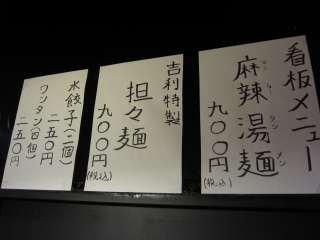 看板メニュー
麻辣湯麺
マーラータンメン
九〇〇円
(税込)
吉利特製
担々麺
九〇〇円
(税込)
水餃子(二個)
二五〇円
ワンタン(四個)
二五〇円